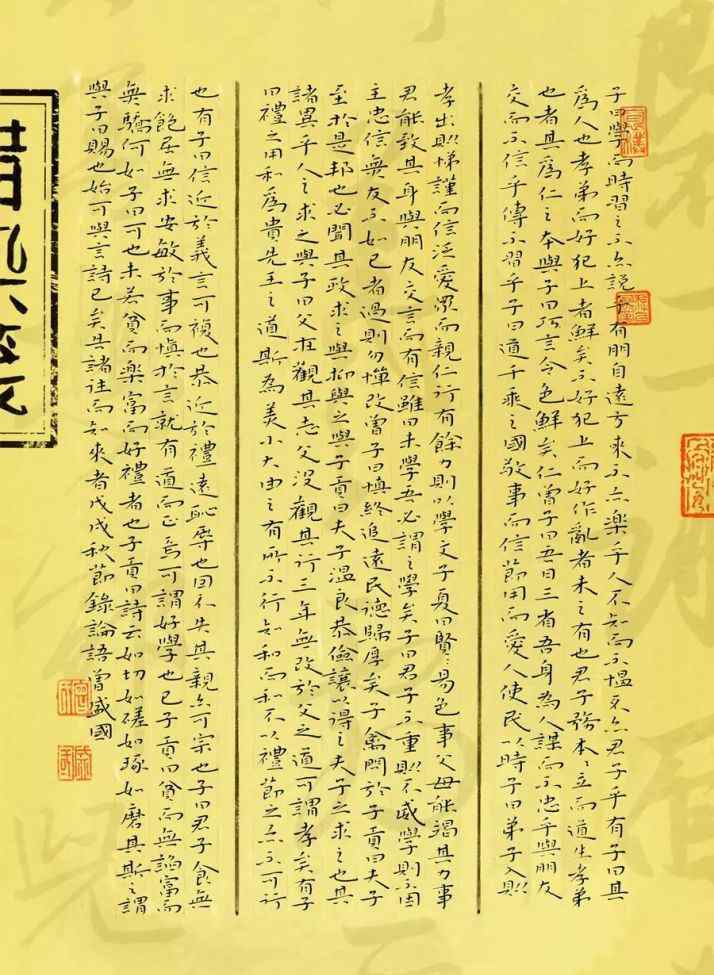 子曰學而時習之不亦說乎有朋自遠方來不亦樂乎人不知而不慍不亦君子乎有子曰其
為人也孝弟而好犯上者鮮矣不好犯上而好作亂者未之有也君子務本〻立而道生孝弟
也者其為仁之本與子曰巧言令色鮮矣仁曾子曰吾日三省吾身為人謀而不忠乎與朋友
交而不信乎傳不習乎子曰道千乘之國敬事而信節用而愛人使民以時子曰弟子入則
孝出則悌謹而信泛愛眾而親仁行有餘力則以學文子夏曰賢〻易色事父母能竭其力事
君能致其身與朋友交言而有信雖曰未學吾必謂之學矣子曰君子不重則不威學則不固
主忠信無友不如己者過則勿憚改曾子曰慎終追遠民德歸厚矣子禽問於子貢曰夫子
至於是邦也必聞其政求之與抑與之與子貢曰夫子溫良恭儉讓以得之夫子之求之也其
諸異乎人之求之與子曰父在觀其志父沒觀其行三年無改於父之道可謂孝矣有子
曰禮之用和為貴先王之道斯為美小大由之有所不行知和而和不以禮節之亦不可行
也有子曰信近於義言可複也恭近於禮遠恥辱也因不失其親亦可宗也子曰君子食無
求飽居無求安敏於事而慎於言就有道而正焉可謂好學也已子貢曰貧而無諂富而
無驕何如子曰可也未若貧而樂富而好禮者也子貢曰詩云如切如磋如琢如磨其斯之謂
與子曰賜也始可與言詩已矣告諸往而知來者戊戌秋節錄論語曾盛國